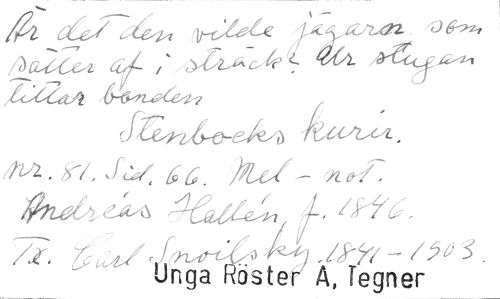 Är det den vilde jägarn som
sätter af i sträck? Ur stugan
tittar bonden
Stenbocks kurir.
nr. 81. Sid. 66. Mel - not.
Andréas Hallén, f. 1846.
Tx. Carl Snoilsky. 1841-1903.
Unga Röster A, Tegner